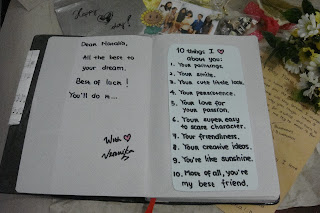 Happy
day!
All the best to
your dream.
Best of luck!
You'll do it...
With ♥
10 things I ♥
about you:
1. Your paintings.
2. Your smile.
3. Your cute little look.
4. Your persistence.
5. Your love for
your passion.
6. Your super easy
to scare character.
7. Your friendliness.
8. Your creative ideas.
9. You're like sunshine.
10. Most of all, you're
my best friend.